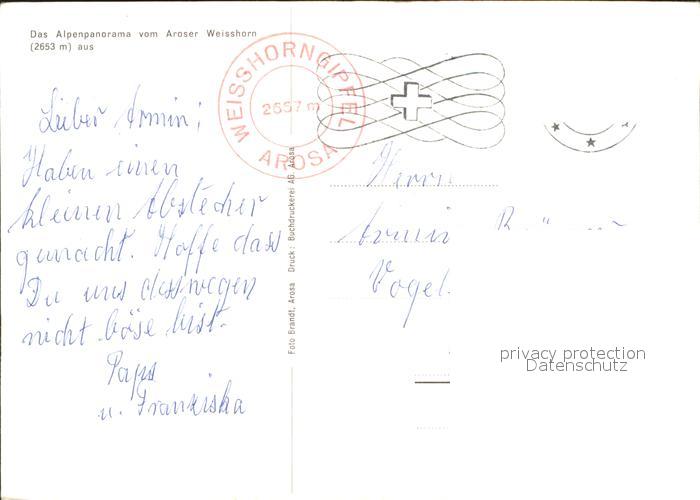 Das Alpenpanorama vom Aroser Weisshorn
(2653 m) aus
WEISSHORNGIPFEL
2657 m
AROSA
Lieber Armin!
Haben einen
kleinen Abstecher
gemacht. Hoffe dass
Du uns desswegen
nicht böse bist.
Paps
u. Franziska
Foto Brandt, Arosa Druck: Buchdruckerei AG, Arosa
Herrn
Armin
Vogel
privacy protection
Datenschutz